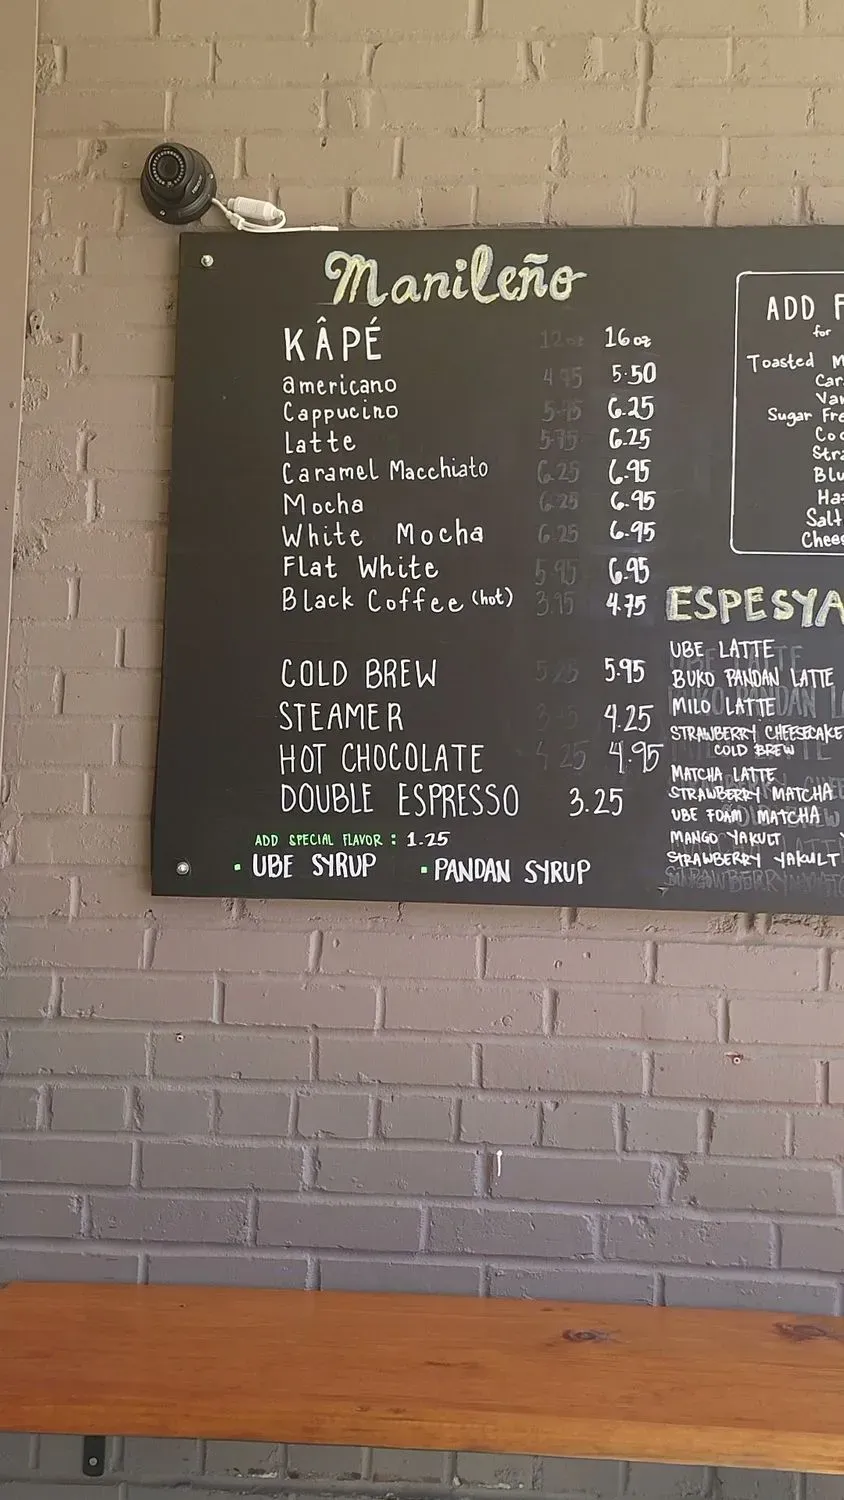 Manileño
KÂPÉ 12oz 16oz
americano 4.75 5.50
Cappucino 5.75 6.25
Latte 5.75 6.25
Caramel Macchiato 6.25 6.95
Mocha 6.25 6.95
White Mocha 6.25 6.95
Flat White 5.95 6.95
Black Coffee (hot) 3.95 4.75
COLD BREW 5.25 5.95
STEAMER 4.25
HOT CHOCOLATE 4.25 4.95
DOUBLE ESPRESSO 3.25
ADD SPECIAL FLAVOR : 1.25
▪ UBE SYRUP ▪ PANDAN SYRUP
ADD F
for
Toasted M
Car
Van
Sugar Fre
Coc
Stra
Blu
Haz
Salt
Chees
ESPESYA
UBE LATTE
BUKO PANDAN LATTE
MILO LATTE
STRAWBERRY CHEESECAKE
COLD BREW
MATCHA LATTE
STRAWBERRY MATCHA
UBE FOAM MATCHA
MANGO YAKULT
STRAWBERRY YAKULT